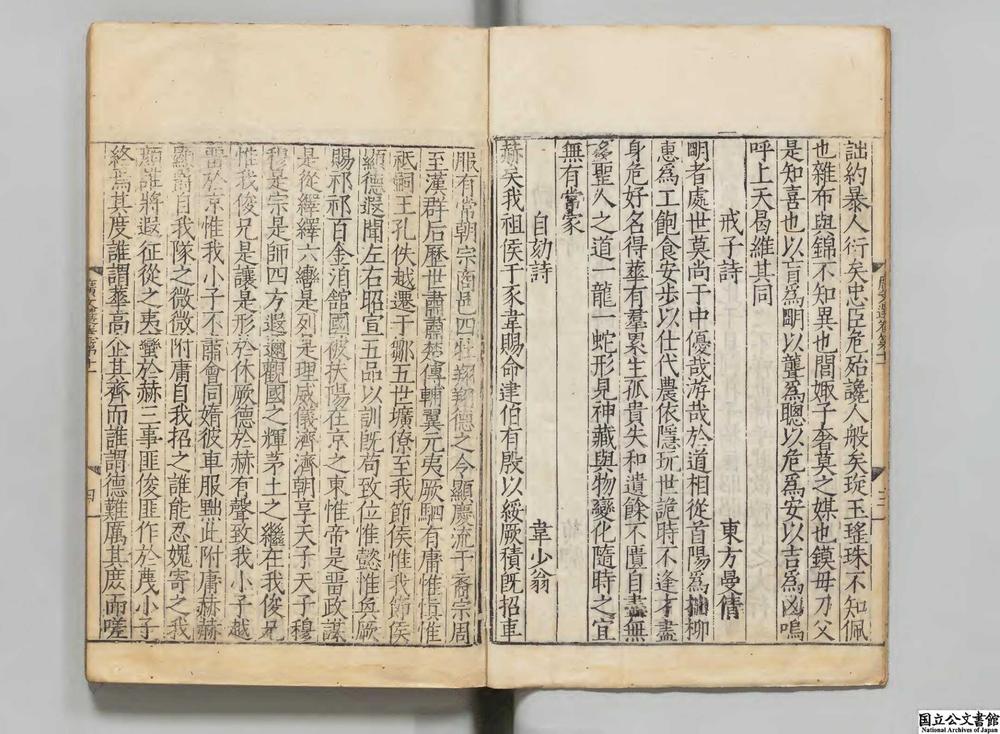 詘約暴人衍矣忠臣危殆讒人般矣琁玉瑤珠不知佩
也雜布與錦不知異也閭娵子奢莫之媒也嫫母刀父
是知喜也以盲爲明以聾爲聰以危爲安以吉爲凶嗚
呼上天曷維其同
戒子詩 東方曼倩
明者處世莫尚于中優哉游哉於道相從首陽爲拙柳
惠爲工飽食安步以仕代農依隱玩世詭時不逢才盡
身危好名得華有羣累生孤貴失和遺餘不匱自盡無
多聖人之道一龍一蛇形見神藏與物變化隨時之宜
無有常家
自劾詩 韋少翁
赫矣我祖侯于豕韋賜命建伯有殷以綏厥積旣招車
服有常朝宗商邑四牡翔翔德之令顯慶流于裔宗周
至漢群后歷世肅肅楚傳輔翼元夷厥駟有庸惟愼惟
祗嗣王孔佚越遷于鄒五世壙僚至我節侯惟我節侯
顯德遐聞左右昭宣五品以訓旣耇致位惟懿惟奐厥
賜祁祁百金洎館國彼扶陽在京之東惟帝是畱政謀
是從繹繹六轡是列是理威儀濟濟朝享天子天子穆
穆是宗是師四方遐邇觀國之輝茅土之繼在我俊兄
惟我俊兄是讓是形於休厥德於赫有聲致我小子越
畱於京惟我小子不肅會同媠彼車服黜此附庸赫赫
顯爵自我隊之微微附庸自我招之誰能忍媿寄之我
顔誰將遐征從之夷蠻於赫三事匪俊匪作於蔑小子
終焉其度誰謂華高企其齊而誰謂德難厲其庶而嗟
廣文選卷第十一
三
廣文選卷第十一
四
国立公文書館
National Archives of Japan